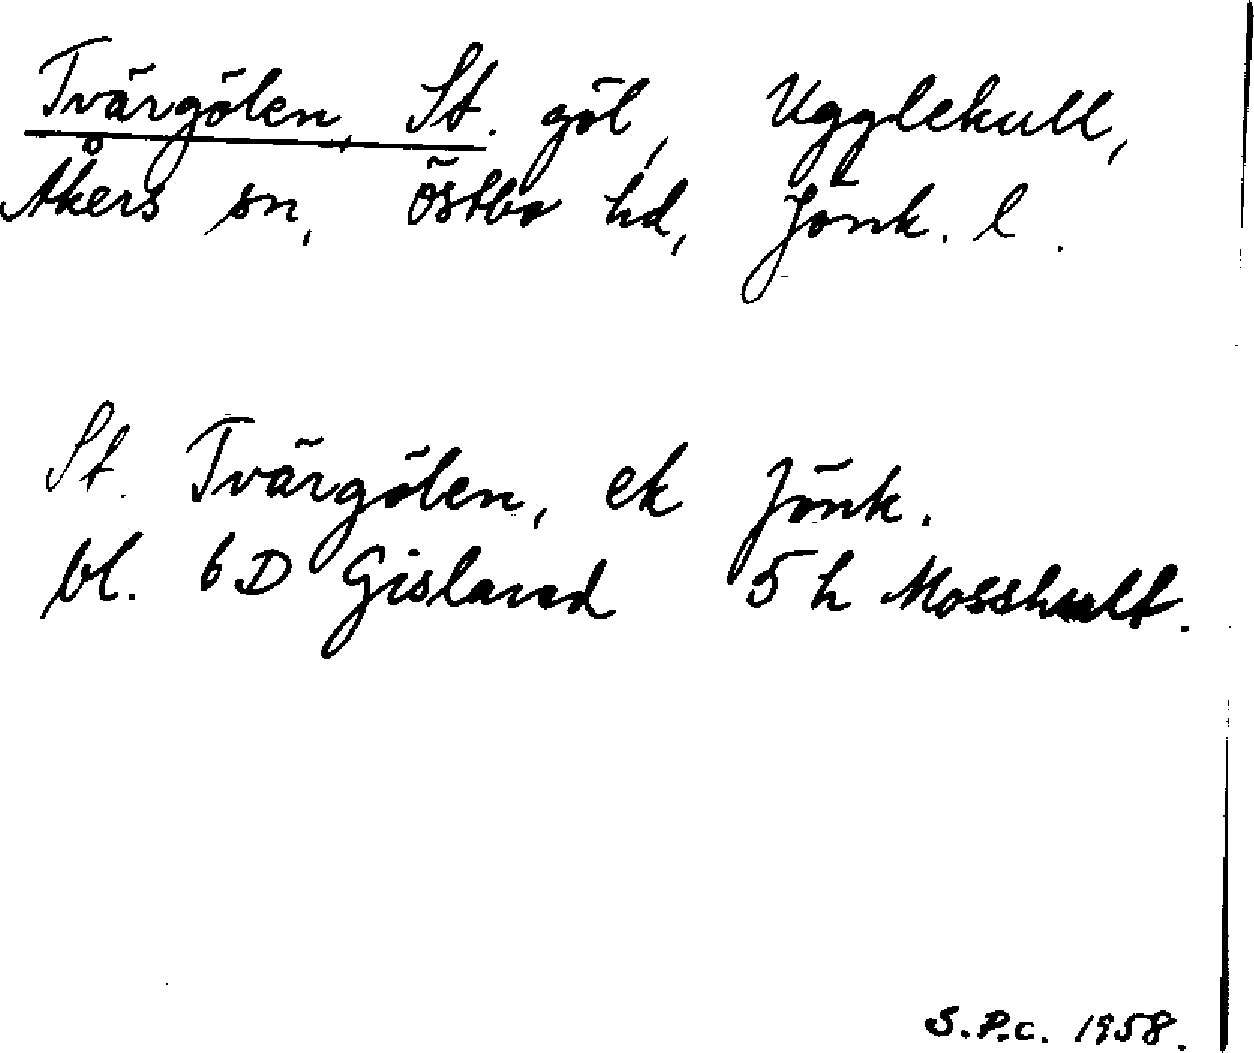 Tvärgölen, St. göl, Ugglekull,
Åkers sn, Östbo hd, Jönk. l.
St. Tvärgölen, ek Jönk.
bl. 6D Gislaved 5h Mosshult.
S.P.C. 1958.